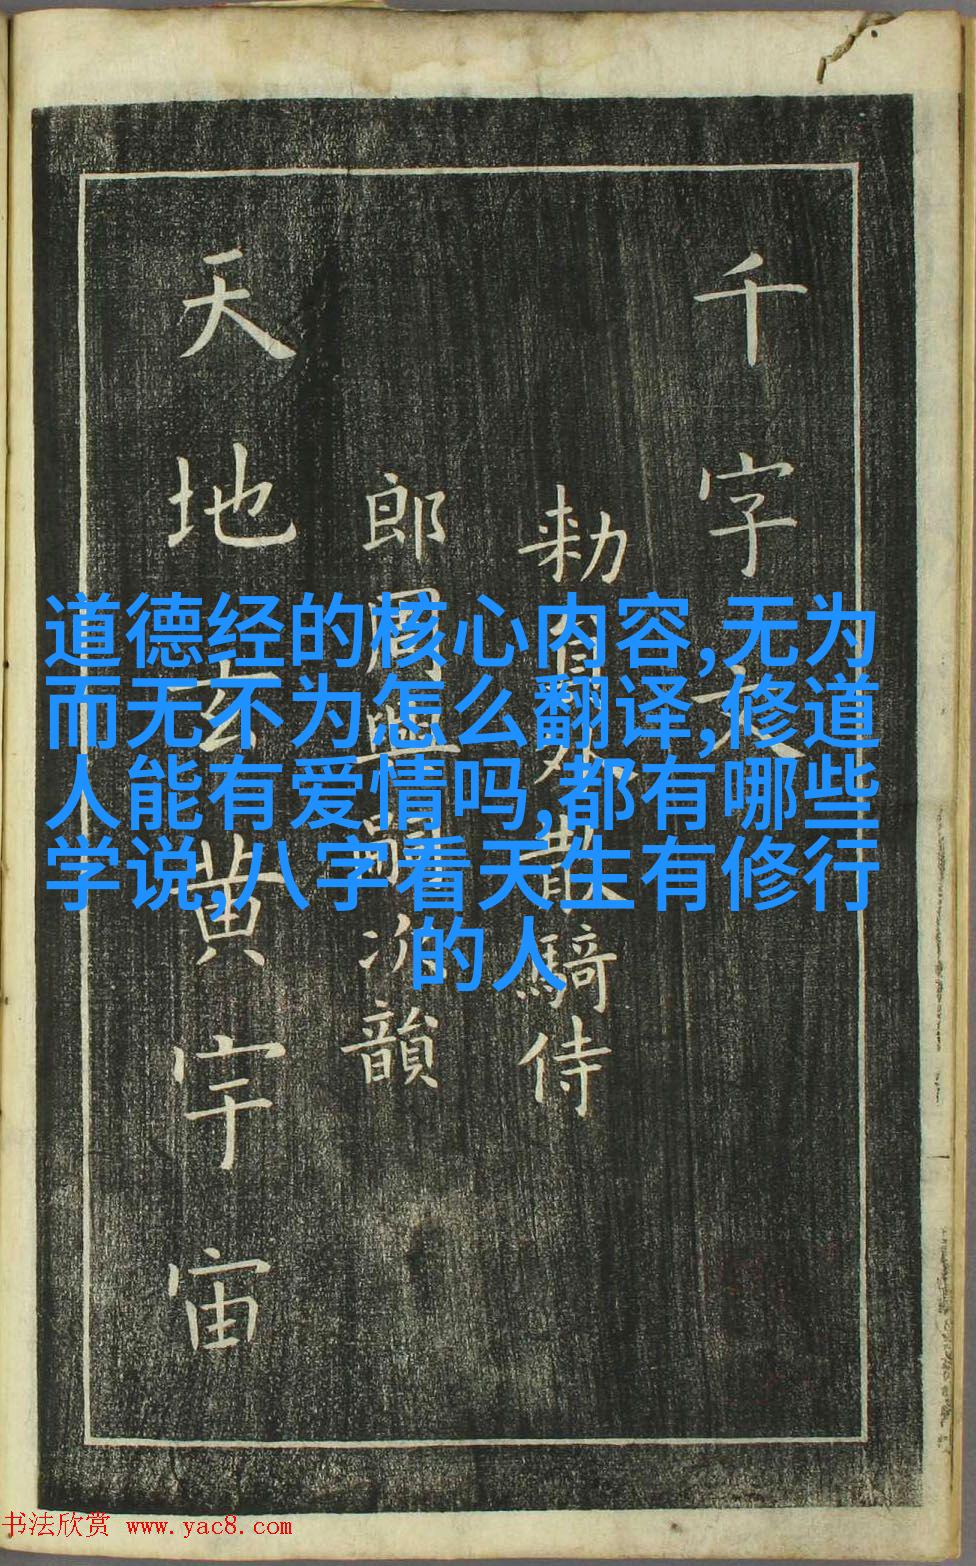 千字文
勑員外散騎侍
郎周興嗣次韻
天地玄黄宇宙
道德经的核心内容,无为
而无不为怎么翻译,修道
人能有爱情吗,都有哪些
学说,八字看天生有修行
的人
书法欣赏 www.yac8.com